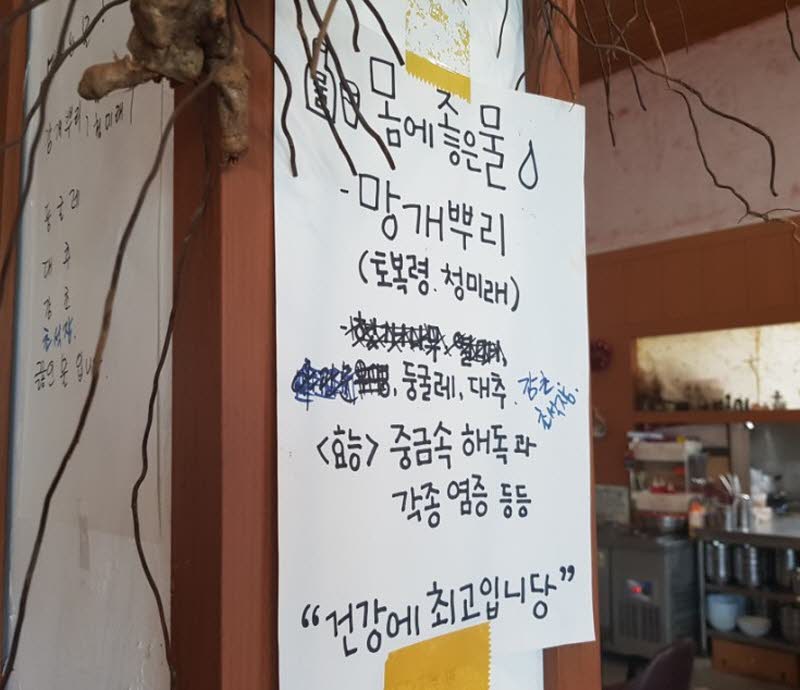 망개뿌리(청미래)
둥굴레
대추
감초
초석잠.
끓인 물 입니다.
몸에 좋은물
- 망개뿌리
(토복령. 청미래)
, 둥굴레, 대추. 감초
초석잠.
<효능> 중금속 해독과
각종 염증 등등
“건강에 최고입니당”